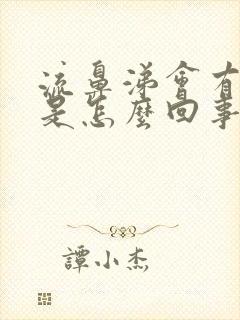 流鼻涕會有
是怎麼回事
譚小杰